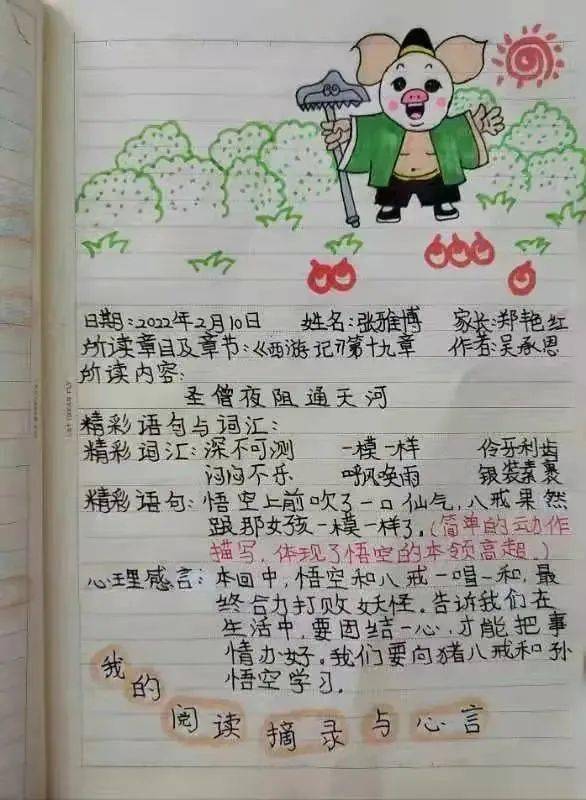 日期:2022年2月10日 姓名:张雅博 家长:郑艳红
所读章目及章节:《西游记》第十九章 作者:吴承恩
所读内容:
圣僧夜阻通天河
精彩语句与词汇:
精彩词汇:深不可测 一模一样 伶牙利齿
闷闷不乐 呼风唤雨 银装素裹
精彩语句:悟空上前吹了一口仙气,八戒果然
跟那女孩一模一样了。(简单的动作
描写,体现了悟空的本领高超。)
心理感言:本回中,悟空和八戒一唱一和,最
终合力打败妖怪。告诉我们在
生活中,要团结一心,才能把事
情办好。我们要向猪八戒和孙
悟空学习。
我的阅读摘录与心言